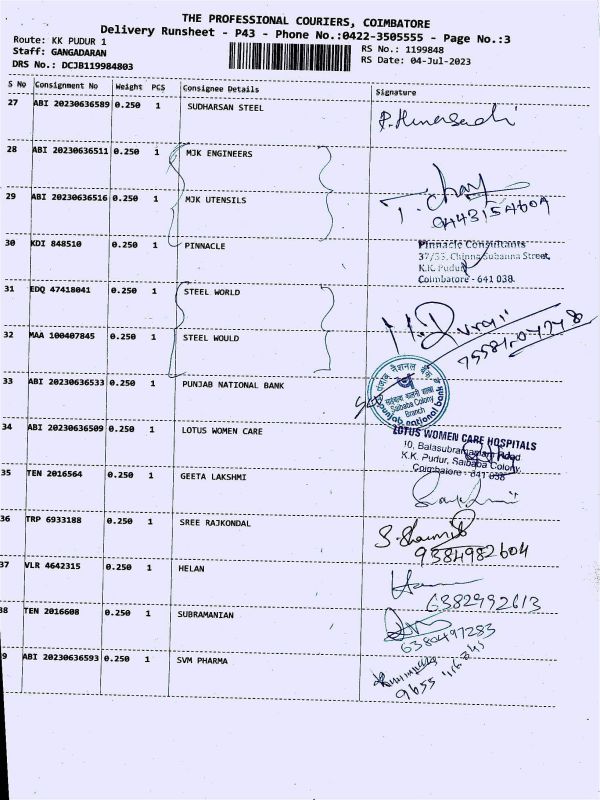 THE PROFESSIONAL COURIERS, COIMBATORE
Delivery Runsheet - P43 - Phone No.:0422-3505555 - Page No.:3
Route: KK PUDUR 1 RS No.: 1199848
Staff: GANGADARAN RS Date: 04-Jul-2023
DRS No.: DCJB119984803
S No Consignment No Weight PCS Consignee Details Signature
27 ABI 20230636589 0.250 1 SUDHARSAN STEEL
28 ABI 20230636511 0.250 1 MJK ENGINEERS
29 ABI 20230636516 0.250 1 MJK UTENSILS
30 KDI 848510 0.250 1 PINNACLE
Pinnacle Consultants
37/33, Chinna Subanna Street,
K.K. Pudur
Coimbatore - 641 038.
31 EDQ 47418041 0.250 1 STEEL WORLD
32 MAA 100407845 0.250 1 STEEL WOULD
33 ABI 20230636533 0.250 1 PUNJAB NATIONAL BANK
पंजाब नैशनल बैंक
Saibaba Colony
Branch
punjab national bank
34 ABI 20230636509 0.250 1 LOTUS WOMEN CARE
LOTUS WOMEN CARE HOSPITALS
10, Balasubramaniam Road
K.K. Pudur, Saibaba Colony,
Coimbatore - 641 038
35 TEN 2016564 0.250 1 GEETA LAKSHMI
36 TRP 6933188 0.250 1 SREE RAJKONDAL
9384982604
37 VLR 4642315 0.250 1 HELAN
6382992613
38 TEN 2016608 0.250 1 SUBRAMANIAN
6380497283
9 ABI 20230636593 0.250 1 SVM PHARMA